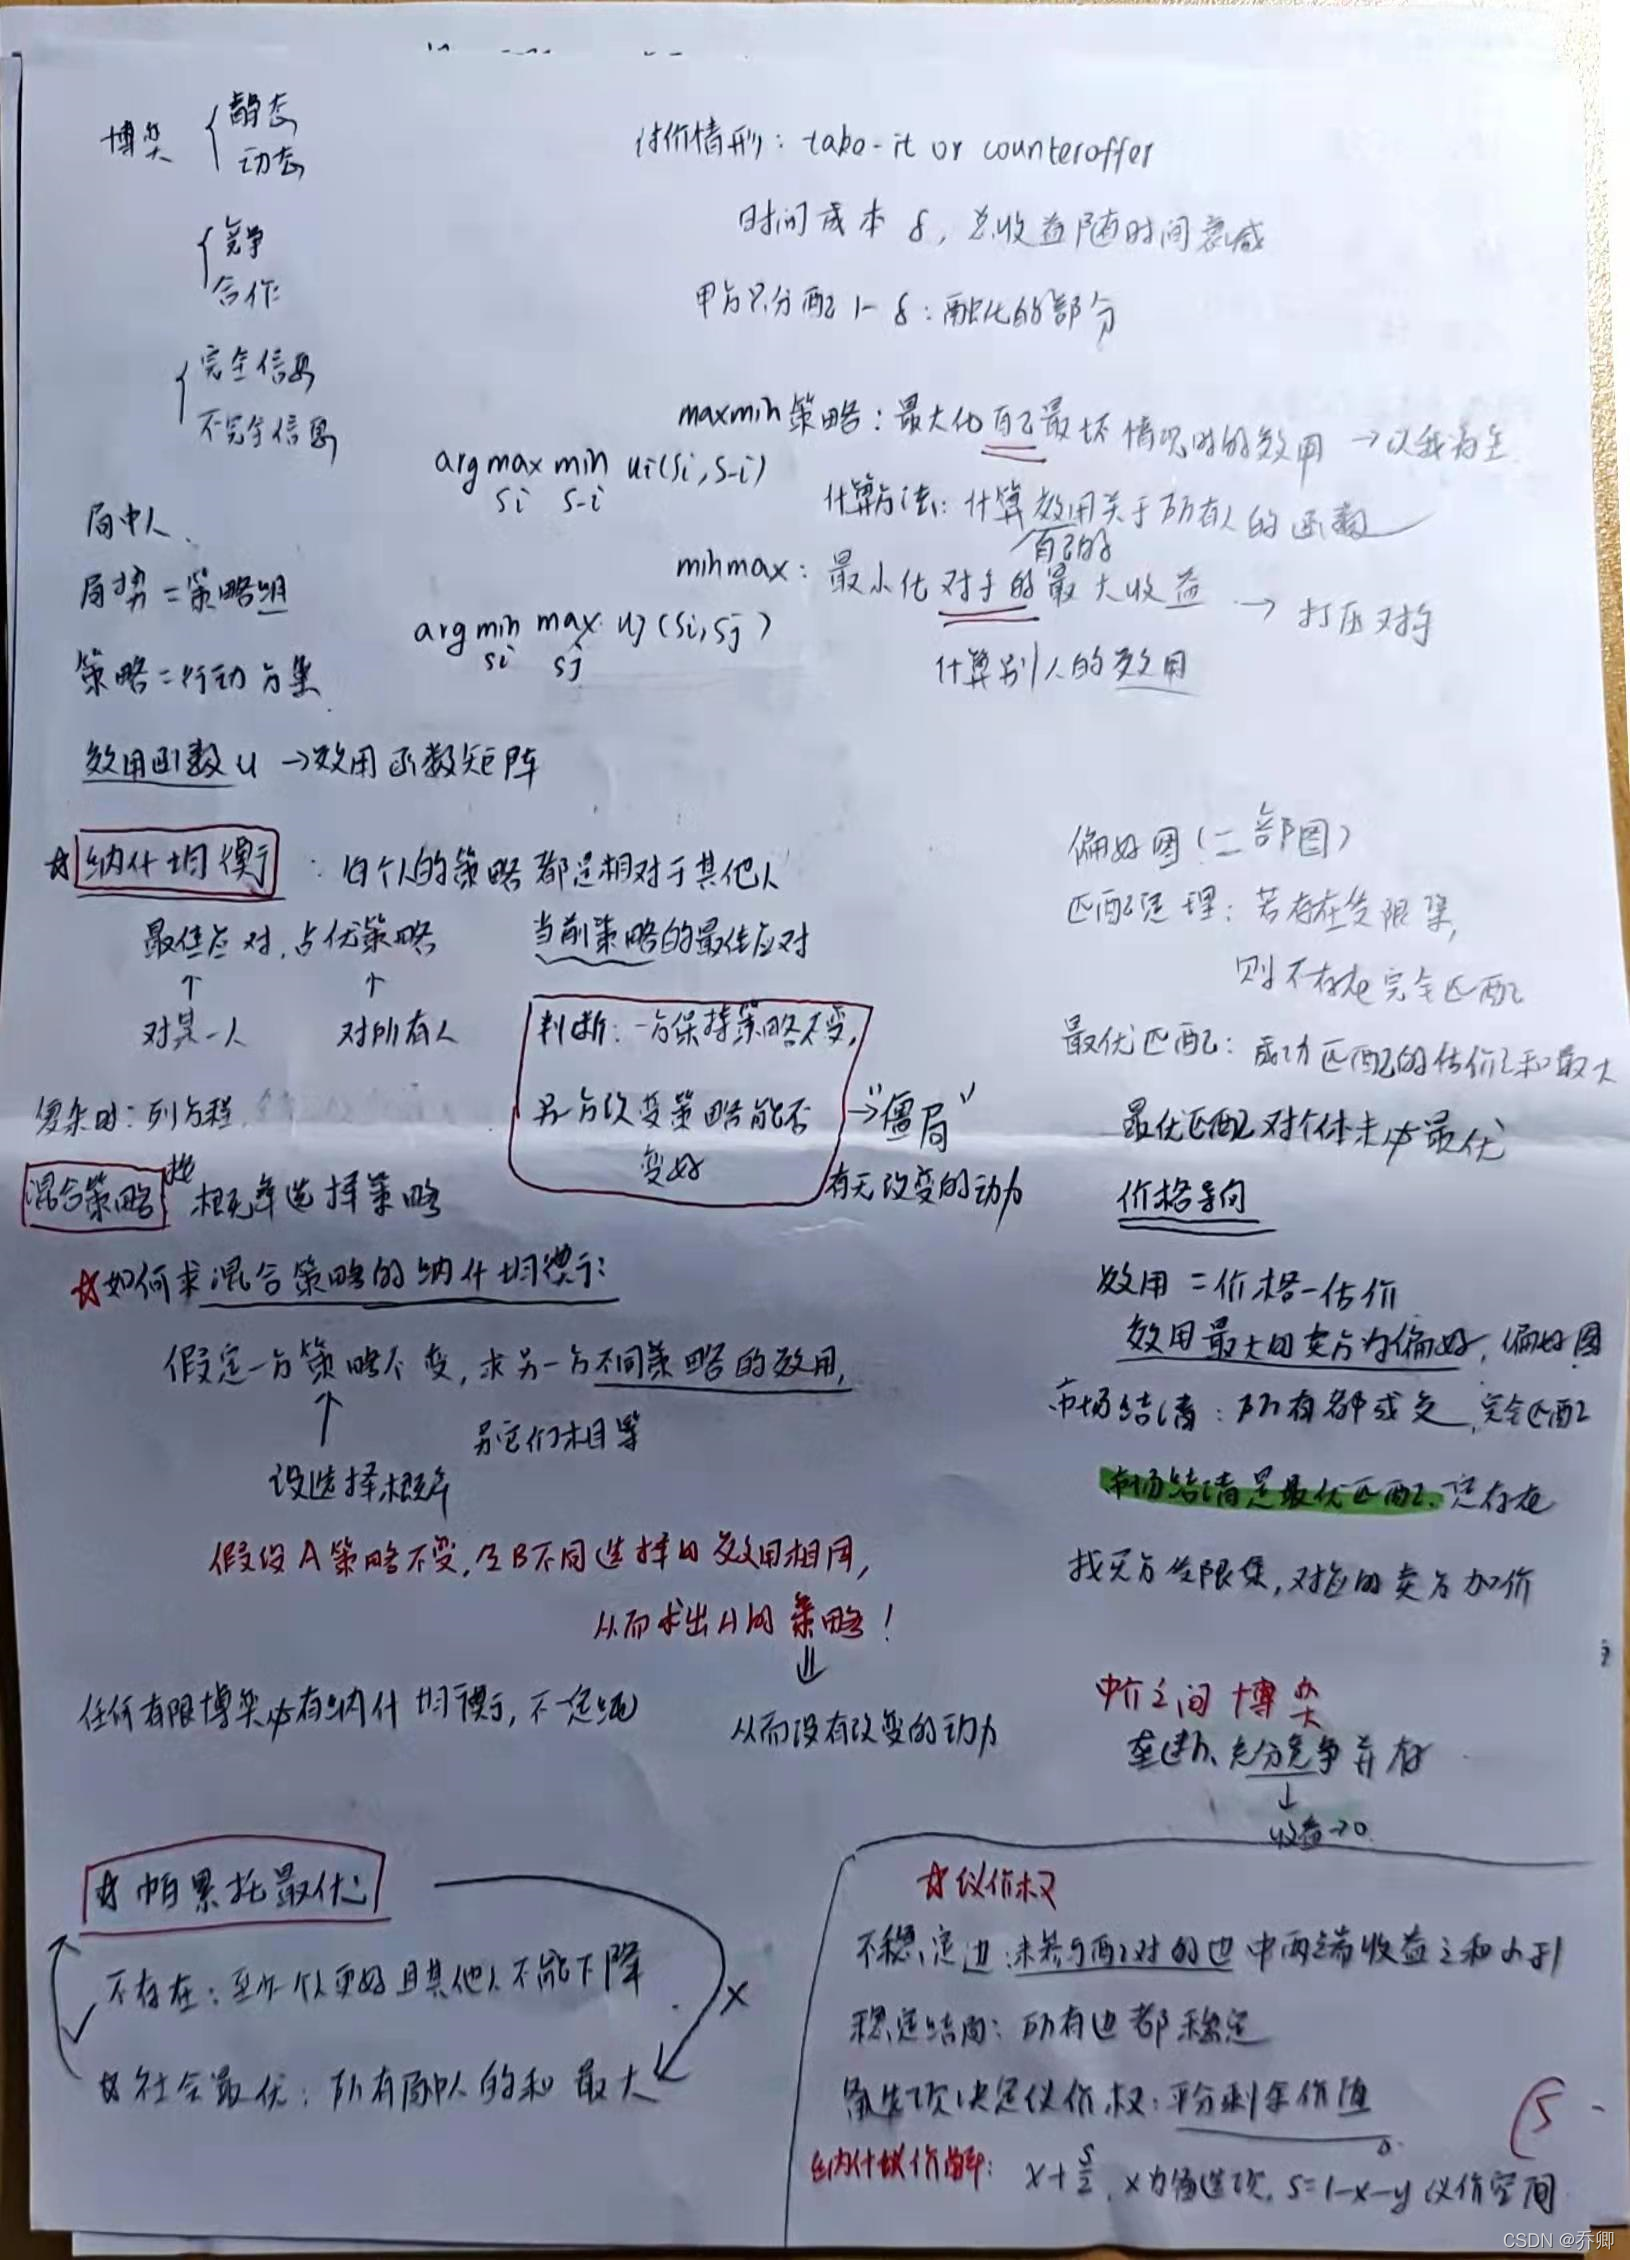 博弈 静态
动态
竞争
合作
完全信息
不完全信息
讨价情形：take-it or counteroffer
时间成本 δ，总收益随时间衰减
甲方只分配 1-δ：融化的部分
maxmin策略：最大化自己最坏情况时的效用 →以我为主
argmax min ui(si,s-i)
si s-i
计算方法：计算效用关于所有人的函数
自己的
minmax：最小化对手的最大收益 → 打压对手
argmin max uj(si,sj)
si sj
计算别人的效用
局中人、
局势=策略组
策略=行动方集
效用函数u →效用函数矩阵
☆纳什均衡：每个人的策略都是相对于其他人
当前策略的最佳应对
最佳应对，占优策略
↑ ↑
对某一人 对所有人
判断：一方保持策略不变，
另一方改变策略能否
变好
→“僵局”
有无改变的动力
复杂时：列方程
混合策略 按概率选择策略
☆如何求混合策略的纳什均衡：
假定一方策略不变，求另一方不同策略的效用，
↑ 另它们相等
设选择概率
假设A策略不变，令B不同选择的效用相同，
从而求出A的策略！
⇓
从而没有改变的动力
任何有限博弈必有纳什均衡，不一定纯
偏好图（二部图）
匹配定理：若存在受限集，
则不存在完全匹配
最优匹配：成功匹配的估价之和最大
最优匹配对个体未必最优
价格导向
效用=价格-估价
效用最大的卖方为偏好，偏好图
市场结清：所有都成交，完全匹配
市场结清是最优匹配，定存在
找买方受限集，对应的卖方加价
中介之间博弈
垄断、充分竞争并存
↓
收益→0
☆帕累托最优
不存在：至少一个人更好且其他人不能下降
☆社会最优：所有局中人的和最大
×
☆议价权
不稳定边：未参与配对的边中两端收益之和小于1
稳定结局：所有边都稳定
备选项决定议价权：平分剩余价值
纳什议价解：x+s/2，x为备选项，s=1-x-y 议价空间
CSDN @乔卿